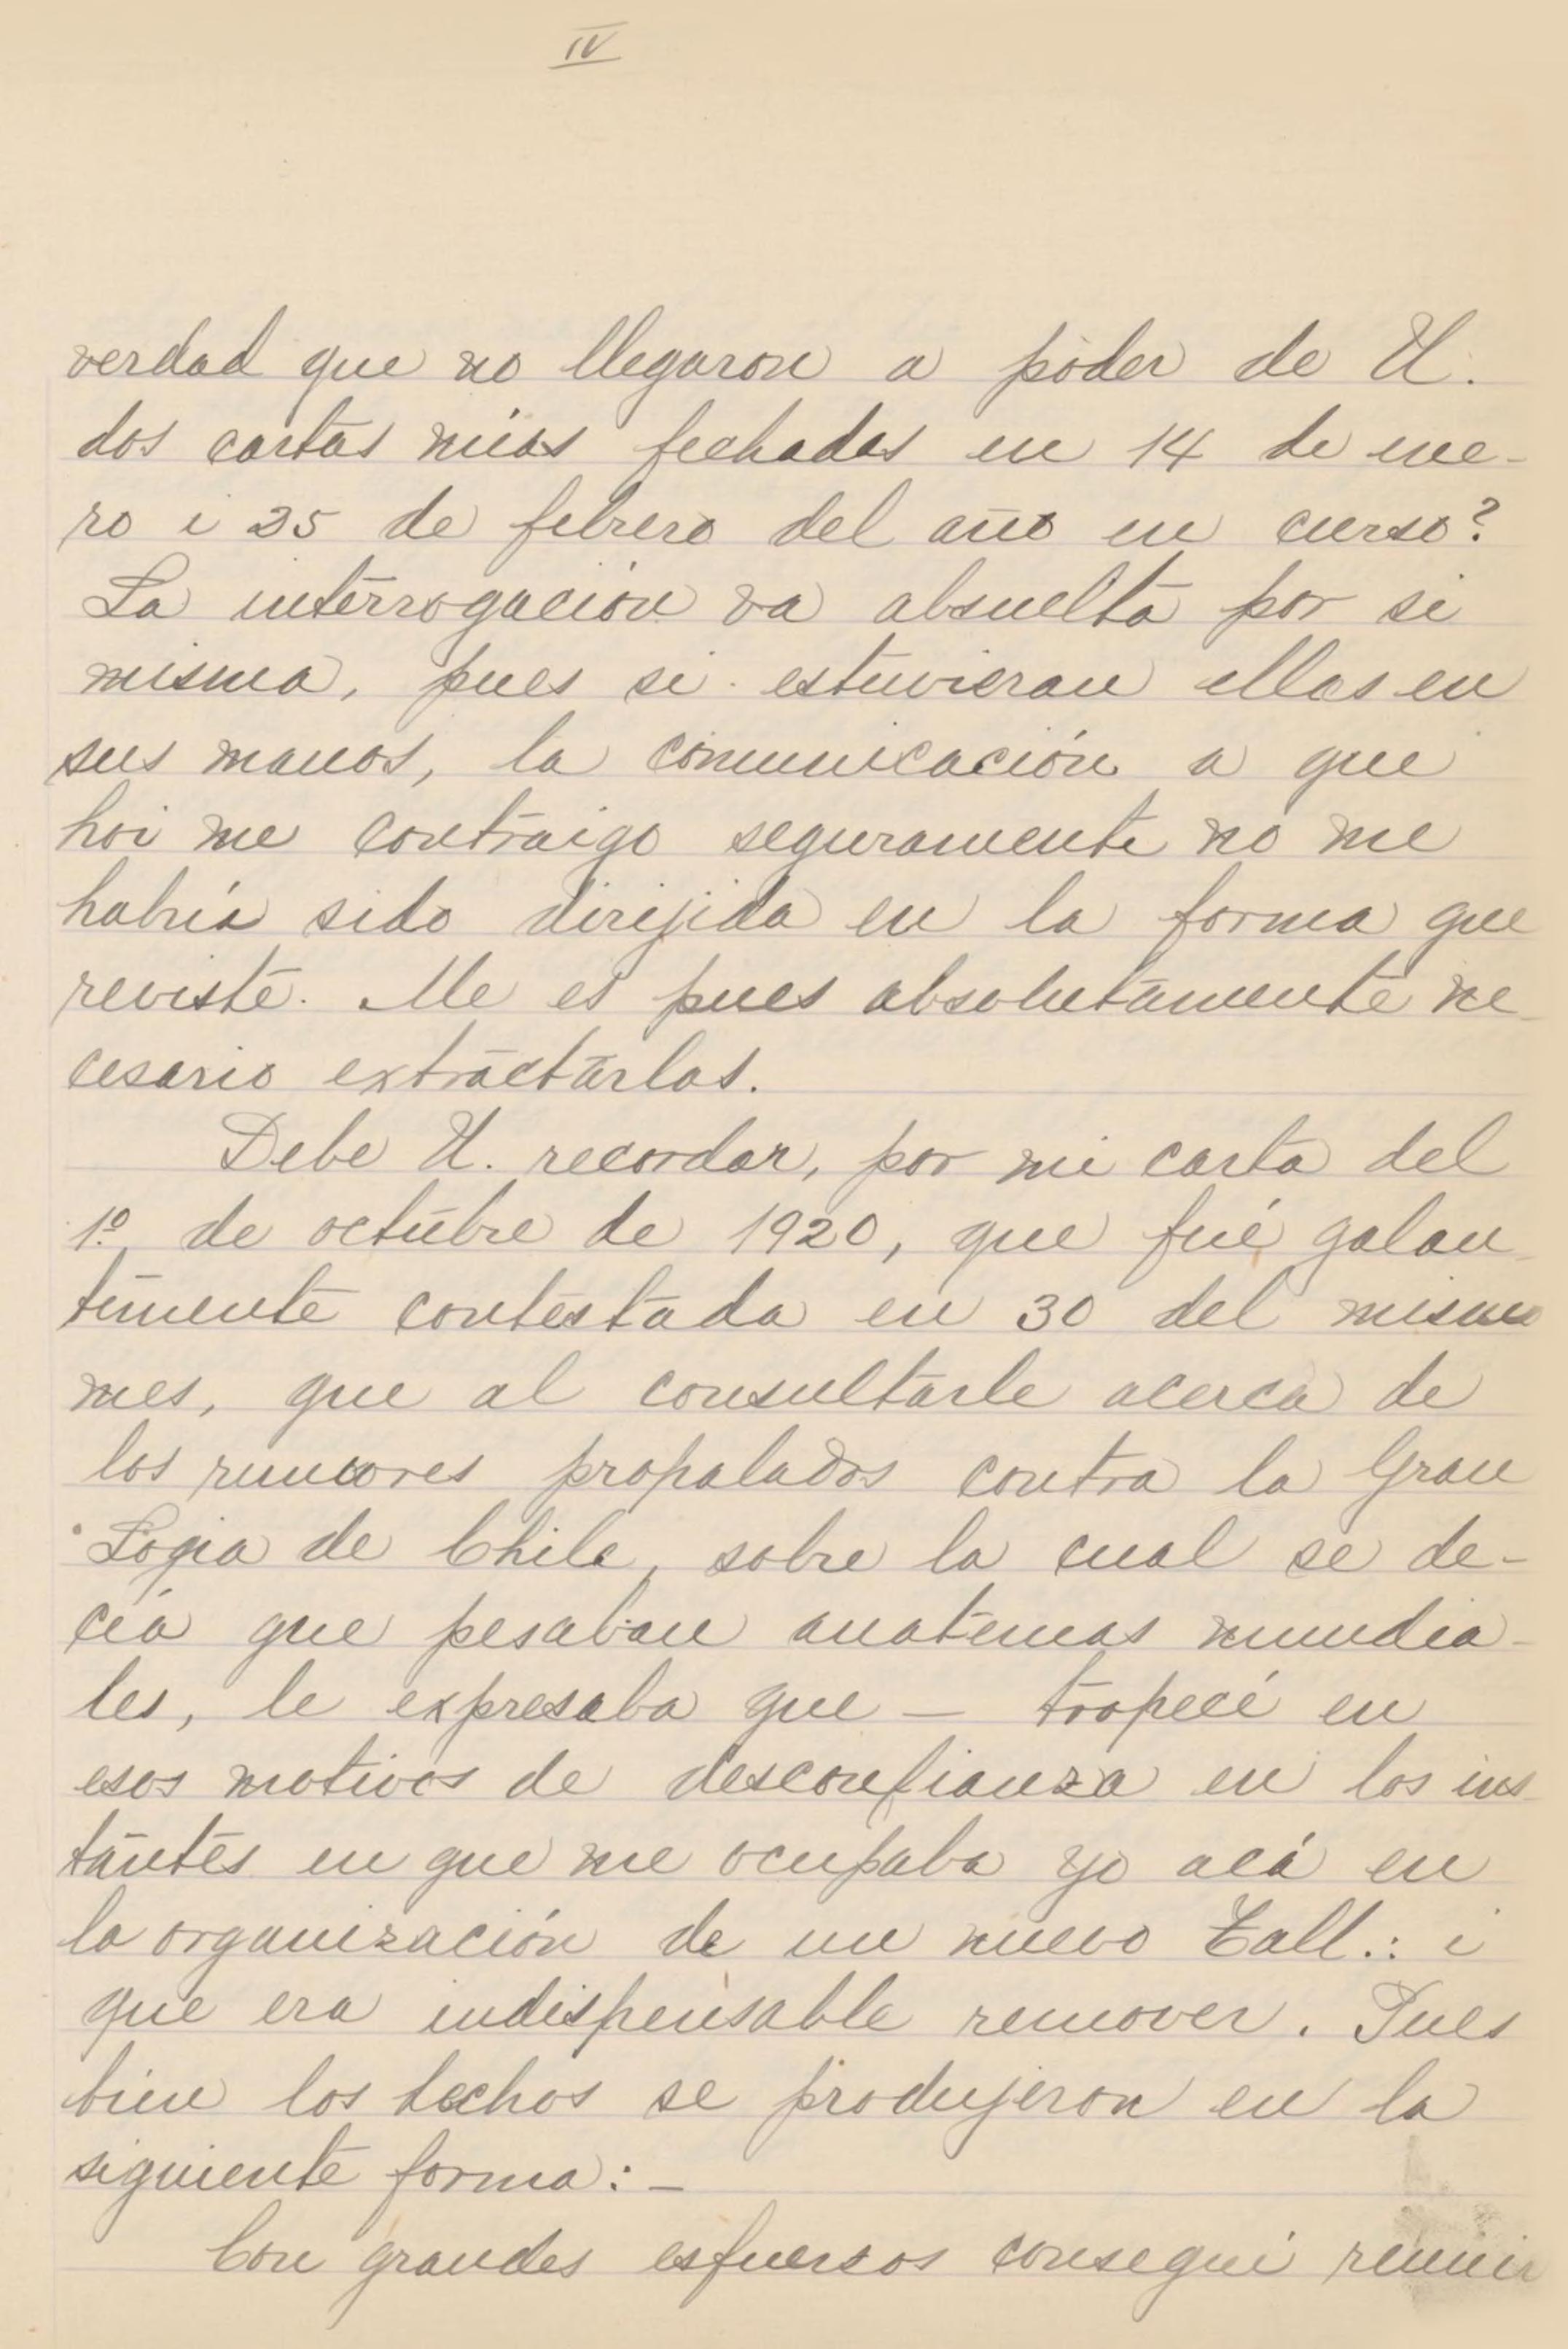 IV
verdad que no llegaron a poder de U.
dos cartas mías fechadas en 14 de ene-
ro i 25 de febrero del año en curso?
La interrogación va absuelta por si
misma, pues si estuvieran ellas en
sus manos, la comunicación a que
hoi me contraigo seguramente no me
habría sido dirijida en la forma que
reviste. Me es pues absolutamente ne-
cesario extractarlas.
Debe U. recordar, por mi carta del
1º, de octubre de 1920, que fué galan-
temente contestada en 30 del mismo
mes, que al consultarle acerca de
los rumores propalados contra la Gran
Logia de Chile, sobre la cual se de-
cía que pesaban anatemas mundia-
les, le expresaba que — tropecé en
esos motivos de desconfianza en los ins-
tantes en que me ocupaba yo acá en
la organización de un nuevo Tall.: i
que era indispensable remover. Pues
bien los hechos se produjeron en la
siguiente forma: —
Con grandes esfuersos conseguí reunir